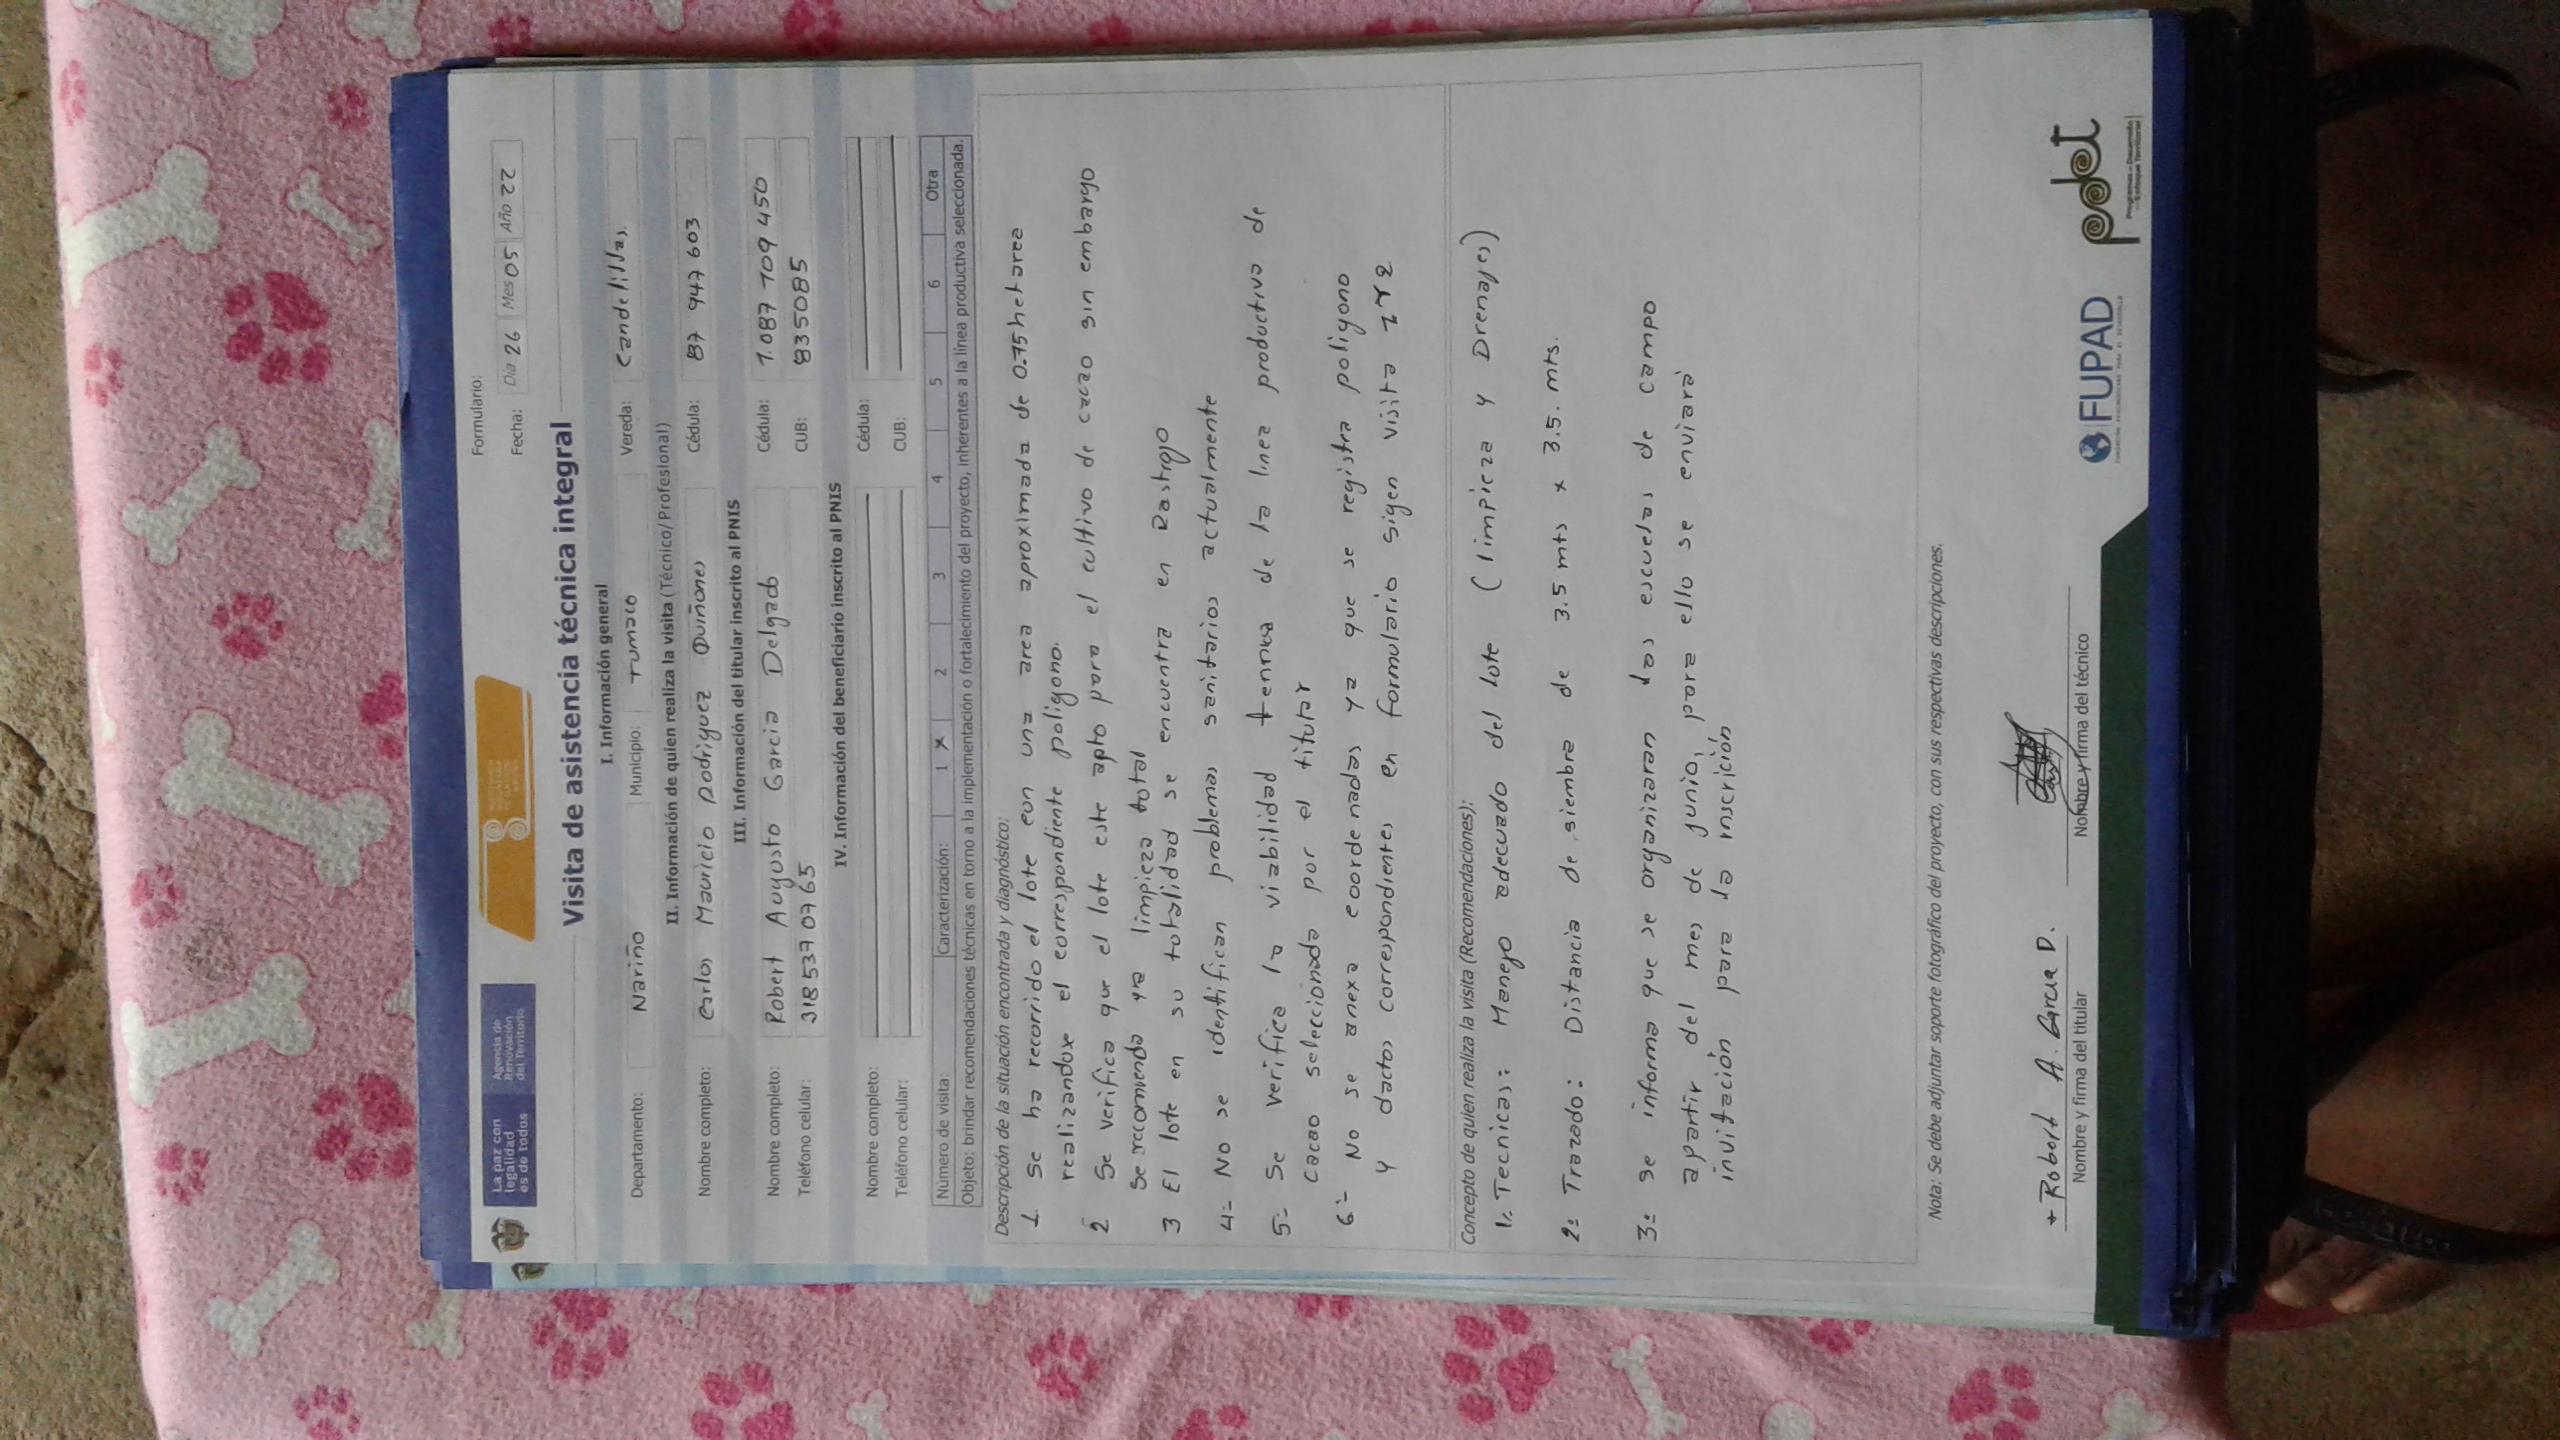 La paz con
legalidad
es de todos
Agencia de
Renovación
del Territorio
Formulario:
Fecha: Día 26 Mes 05 Año 22
Visita de asistencia técnica integral
I. Información general
Departamento: Nariño Municipio: Tumaco Vereda: Candelillas.
II. Información de quien realiza la visita (Técnico/Profesional)
Nombre completo: Carlos Mauricio Rodriguez Quiñones Cédula: 87 947 603
III. Información del titular inscrito al PNIS
Nombre completo: Robert Augusto Garcia Delgado Cédula: 1.087 709 450
Teléfono celular: 318 537 07 65 CUB: 8350 85
IV. Información del beneficiario inscrito al PNIS
Nombre completo: Cédula:
Teléfono celular: CUB:
Número de visita: Caracterización: 1 X 2 3 4 5 6 Otra
Objeto: brindar recomendaciones técnicas en torno a la implementación o fortalecimiento del proyecto, inherentes a la línea productiva seleccionada.
Descripción de la situación encontrada y diagnóstico:
1. Se ha recorrido el lote con una area aproximada de 0.75 hetarea
realizandoxe el correspondiente poligono.
2 Se verifica que el lote este apto para el cultivo de cacao sin embargo
Se recomienda ya limpieza total
3 El lote en su totalidad se encuentra en Rastrojo
4- No se identifican problemas sanitarios actualmente
5- Se verifica la viabilidad de la linea productiva de
cacao seleccionada por el titular
6- No se anexa coordenadas ya que se registra poligono
y dactos correspondientes en formulario sigen visita 1 Y 2
Concepto de quien realiza la visita (Recomendaciones):
1. Tecnicas: Manejo adecuado del lote (limpieza y Drenajes)
2: Trazado: Distancia de siembra de 3.5 mts x 3.5. mts.
3: se informa que se organizaran las escuelas de campo
apartir del mes de junio, para ello se enviará
invitación para la inscrición
Nota: Se debe adjuntar soporte fotográfico del proyecto, con sus respectivas descripciones.
+ Robert A. Garcia D.
Nombre y firma del titular
Nombre y firma del técnico
FUPAD
pdet
Programas de Desarrollo
con Enfoque Territorial